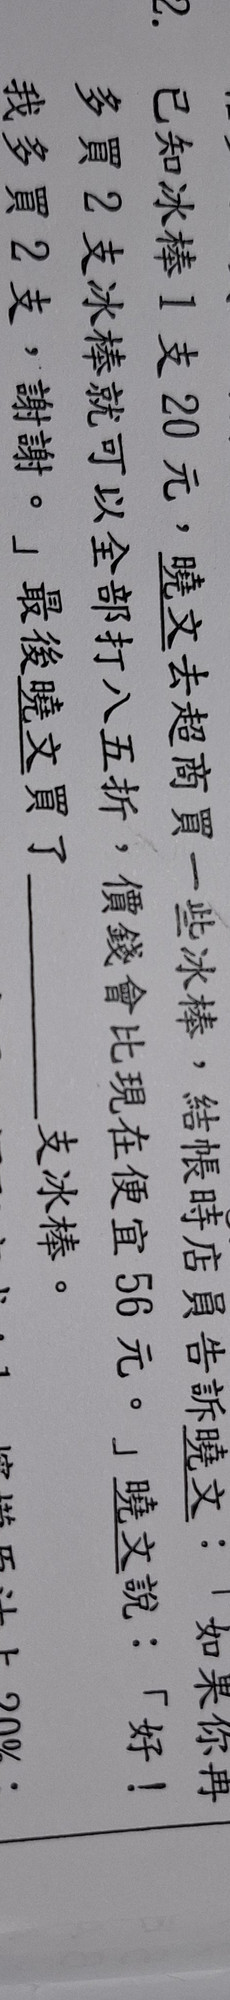 2. 已知冰棒1支20元，曉文去超商買一些冰棒，結帳時店員告訴曉文：「如果你再
多買2支冰棒就可以全部打八五折，價錢會比現在便宜56元。」曉文說：「好！
我多買2支，謝謝。」最後曉文買了________支冰棒。
20%；